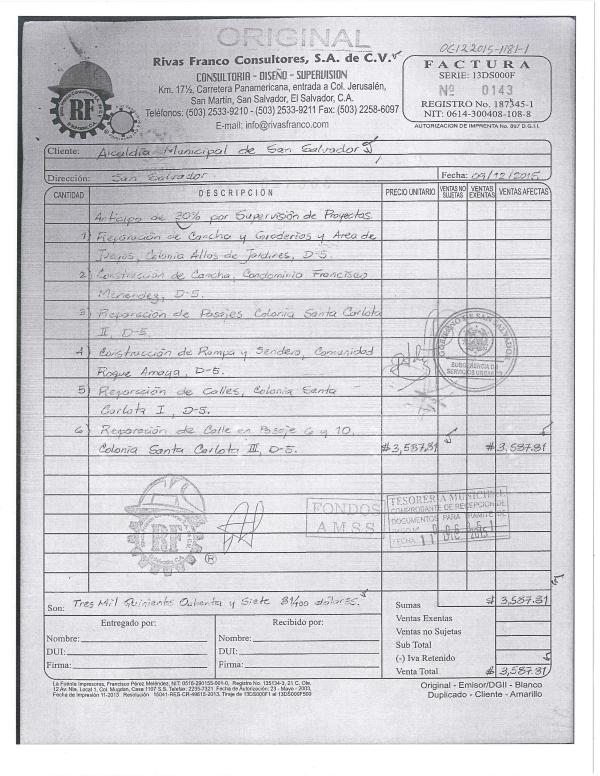 ORIGINAL
Rivas Franco Consultores, S.A. de C.V.
CONSULTORIA - DISEÑO - SUPERVISION
Km. 17½, Carretera Panamericana, entrada a Col. Jerusalén,
San Martín, San Salvador, El Salvador, C.A.
Teléfonos: (503) 2533-9210 - (503) 2533-9211 Fax: (503) 2258-6097
E-mail: info@rivasfranco.com
RF
OG122015-1181-1
FACTURA
SERIE: 13DS000F
Nº 0143
REGISTRO No. 187345-1
NIT: 0614-300408-108-8
AUTORIZACION DE IMPRENTA No. 897 D.G.I.I.
Cliente: Alcaldía Municipal de San Salvador
Dirección: San Salvador Fecha: 09/12/2015
CANTIDAD DESCRIPCIÓN PRECIO UNITARIO VENTAS NO SUJETAS VENTAS EXENTAS VENTAS AFECTAS
Anticipo de 30% por Supervisión de Proyectos.
1) Reparación de Cancha y Graderios y Area de
Juegos, Colonia Altos de Jardines, D-5.
2) Construcción de Cancha, Condominio Francisco
Menendez, D-5.
3) Reparación de Pasajes Colonia Santa Carlota
II, D-5.
4) Construcción de Rampa y Sendero, Comunidad
Roque Amaya, D-5.
5) Reparación de Calles, Colonia Santa
Carlota I, D-5.
6) Reparación de Calle en Pasaje 6 y 10,
Colonia Santa Carlota III, D-5. $3,587.81 $3,587.81
GOBIERNO DE SAN SALVADOR
SUBGERENCIA DE
RF
®
FONDOS
AMSS
TESORERIA MUNICIPAL
COMPROBANTE DE RECEPCION DE
DOCUMENTOS PARA TRAMITE DE
FECHA 11 DIC. 2015
Son: Tres Mil Quinientos Ochenta y Siete 81/100 dólares.
Sumas $ 3,587.81
Ventas Exentas
Ventas no Sujetas
Sub Total
(-) Iva Retenido
Venta Total $ 3,587.81
Entregado por:
Nombre:
DUI:
Firma:
Recibido por:
Nombre:
DUI:
Firma:
La Fuente Impresores, Francisco Pérez Meléndez, NIT: 0516-290155-001-0, Registro No. 135134-3, 21 C. Ote.
12 Av. Nte. Local 1, Col. Mugdan, Casa 1107 S.S. Telefax: 2235-7321 Fecha de Autorización: 23 - Mayo - 2003,
Fecha de Impresión 11-2013 Resolución 15041-RES-CR-49615-2013, Tiraje de 13DS000F1 al 13DS000F500
Original - Emisor/DGII - Blanco
Duplicado - Cliente - Amarillo